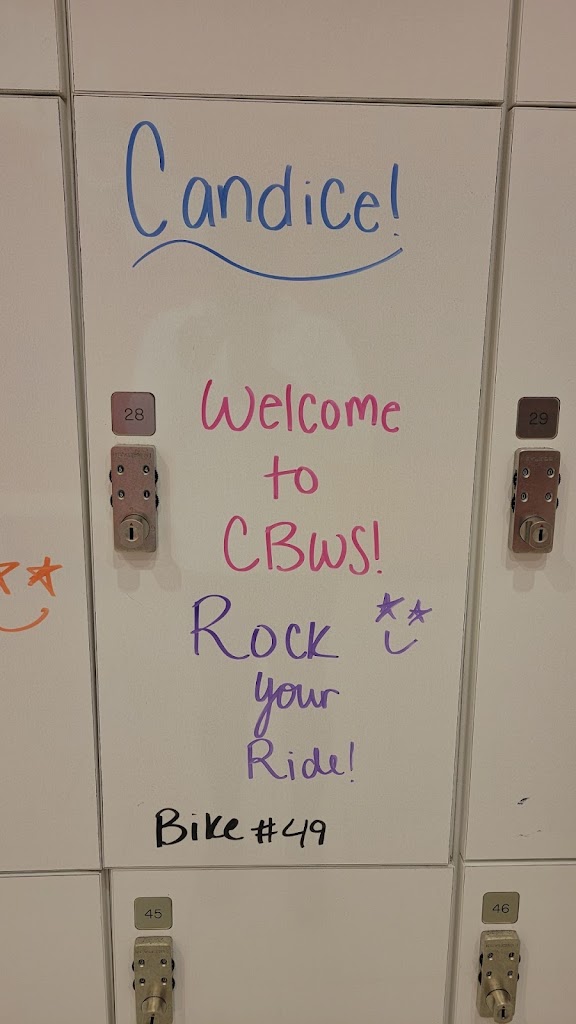 Candice!
28
29
Welcome
to
CBWS!
Rock
your
Ride!
Bike #49
45
46